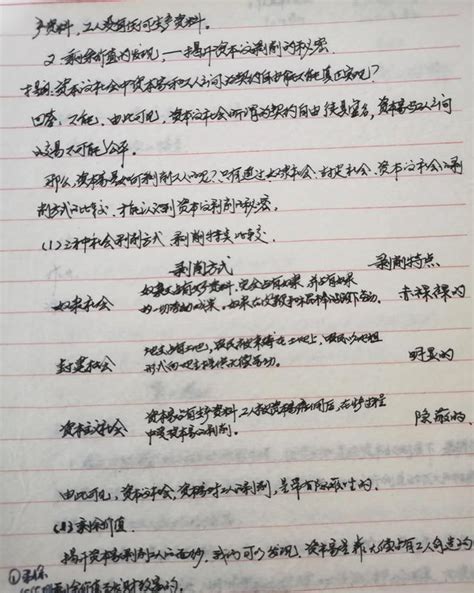 产资料，工人没有任何生产资料。
2. 剩余价值的发现，——揭开资本主义剥削的秘密
提问：资本主义社会中资本家和工人之间的契约自由能不能真正实现？
回答：不能。由此可见，资本主义社会所谓的契约自由纯属虚名，资本家与工人之间
的交易不可能公平。
那么，资本家是如何剥削工人的呢？只有通过奴隶社会、封建社会、资本主义社会的剥
削方式的比较，才能认识到资本主义剥削的秘密。
(1) 三种社会剥削方式、剥削特点比较
剥削方式 剥削特点
奴隶社会 奴隶主占有生产资料，完全占有奴隶，并占有奴隶
的一切劳动成果，奴隶在皮鞭和棍棒的逼迫下劳动。 赤裸裸的
封建社会 地主占有土地，农民被束缚在土地上，以地租
形式向地主提供无偿劳动。 明显的
资本主义社会 资本家占有生产资料，工人被资本家雇佣后，在生产过程
中受资本家的剥削。 隐蔽的
由此可见，资本主义社会，资本家对工人的剥削，是带有隐蔽性的。
(2) 剩余价值
揭开资本家剥削工人的面纱，我们可以发现，资本家是靠无偿占有工人创造的
① 剩余
剩余价值至发财致富的。